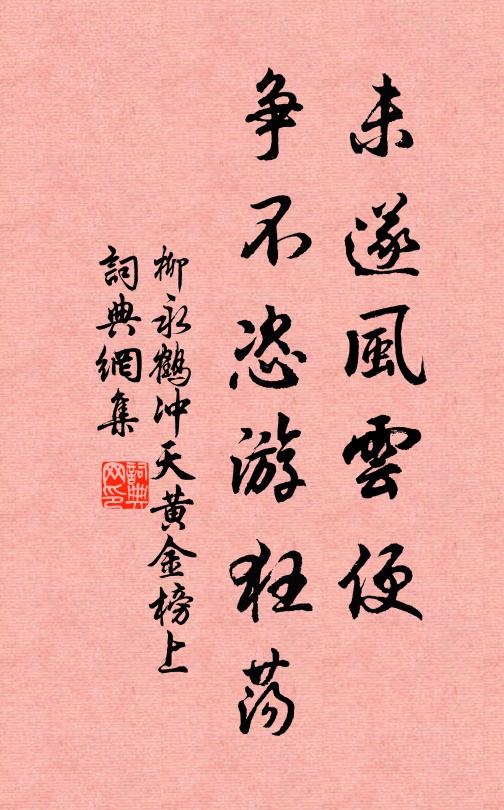 未遂風雲便
争不恣游狂荡
柳永鶴冲天黄金榜上
詞典網集
詞典網印